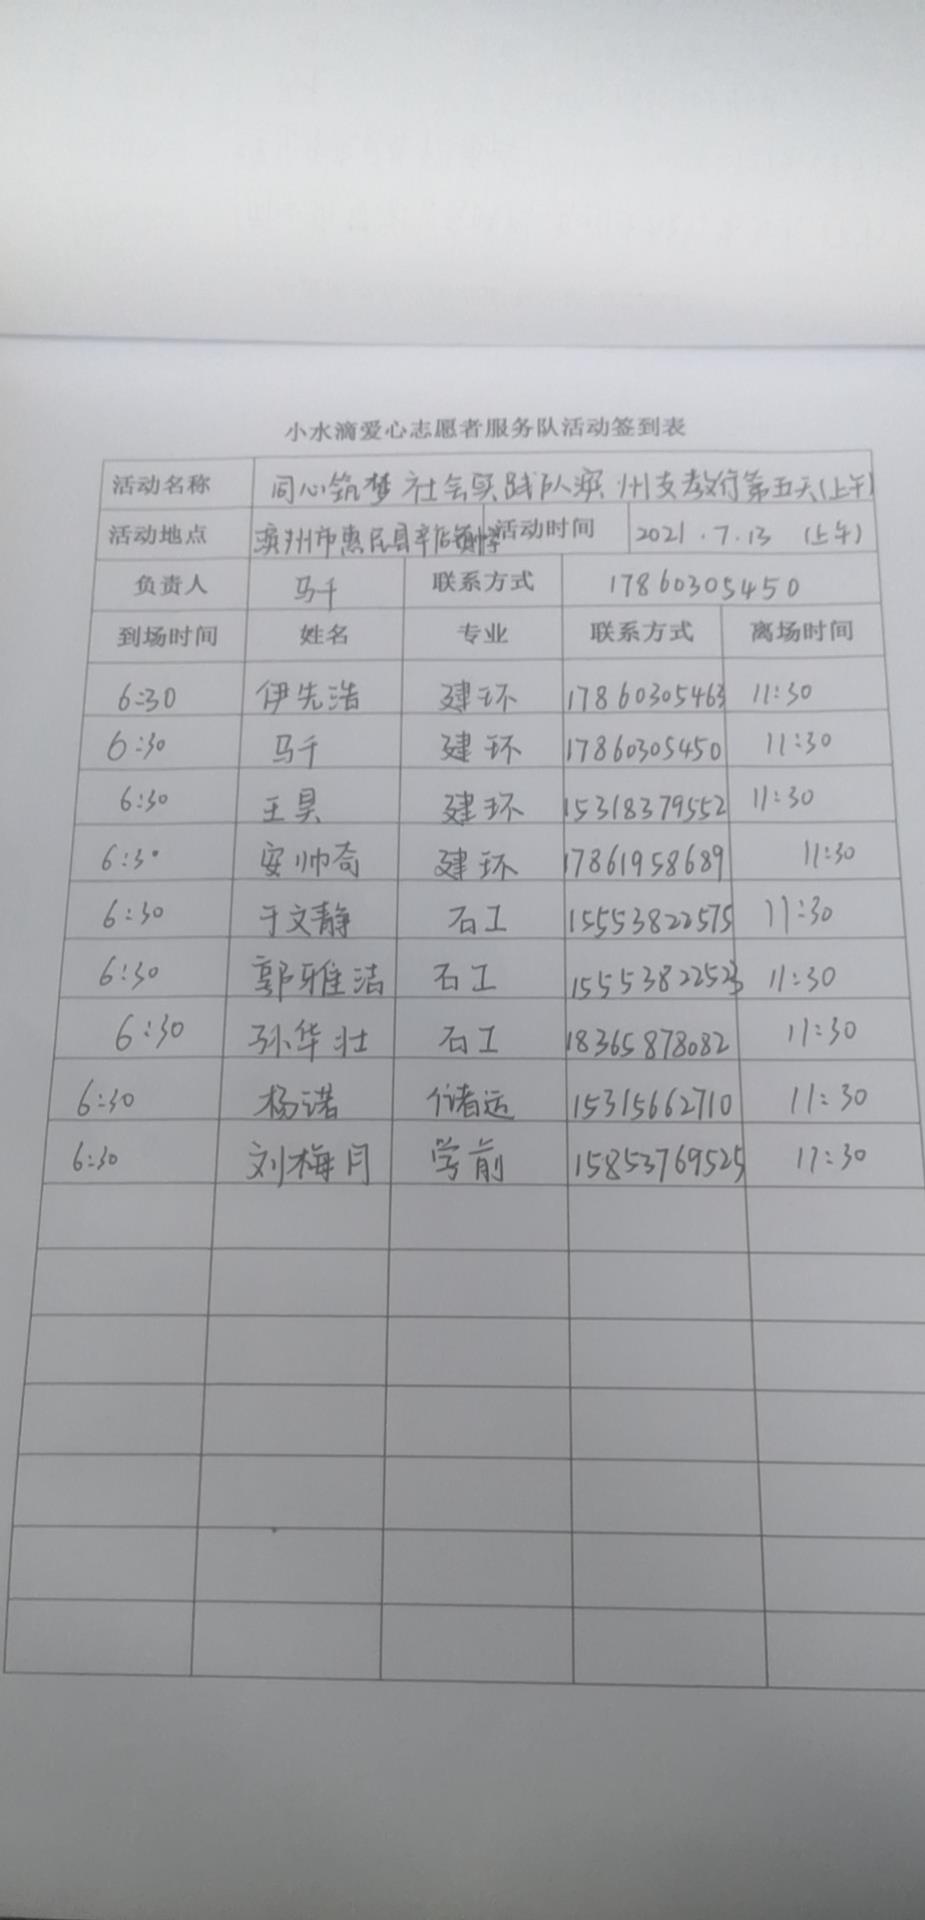 小水滴爱心志愿者服务队活动签到表
活动名称 同心筑梦社会实践队滨州支教行第五天(上午)
活动地点 滨州市惠民县辛店镇中学 活动时间 2021.7.13 (上午)
负责人 马千 联系方式 17860305450
到场时间 姓名 专业 联系方式 离场时间
6:30 伊先浩 建环 17860305463 11:30
6:30 马千 建环 17860305450 11:30
6:30 王昊 建环 15318379552 11:30
6:30 安帅奇 建环 17861958689 11:30
6:30 于文静 石工 15553822575 11:30
6:30 郭雅洁 石工 15553822523 11:30
6:30 孙华壮 石工 18365878082 11:30
6:30 杨诺 储运 15315662710 11:30
6:30 刘梅月 学前 15853769525 11:30